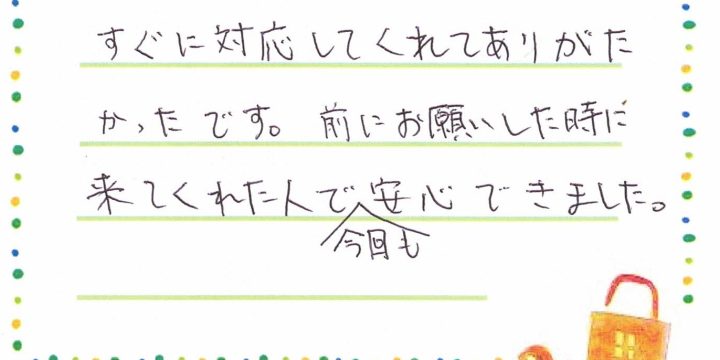 すぐに対応してくれてありがた
かったです。前にお願いした時に
来てくれた人で安心できました。
今回も